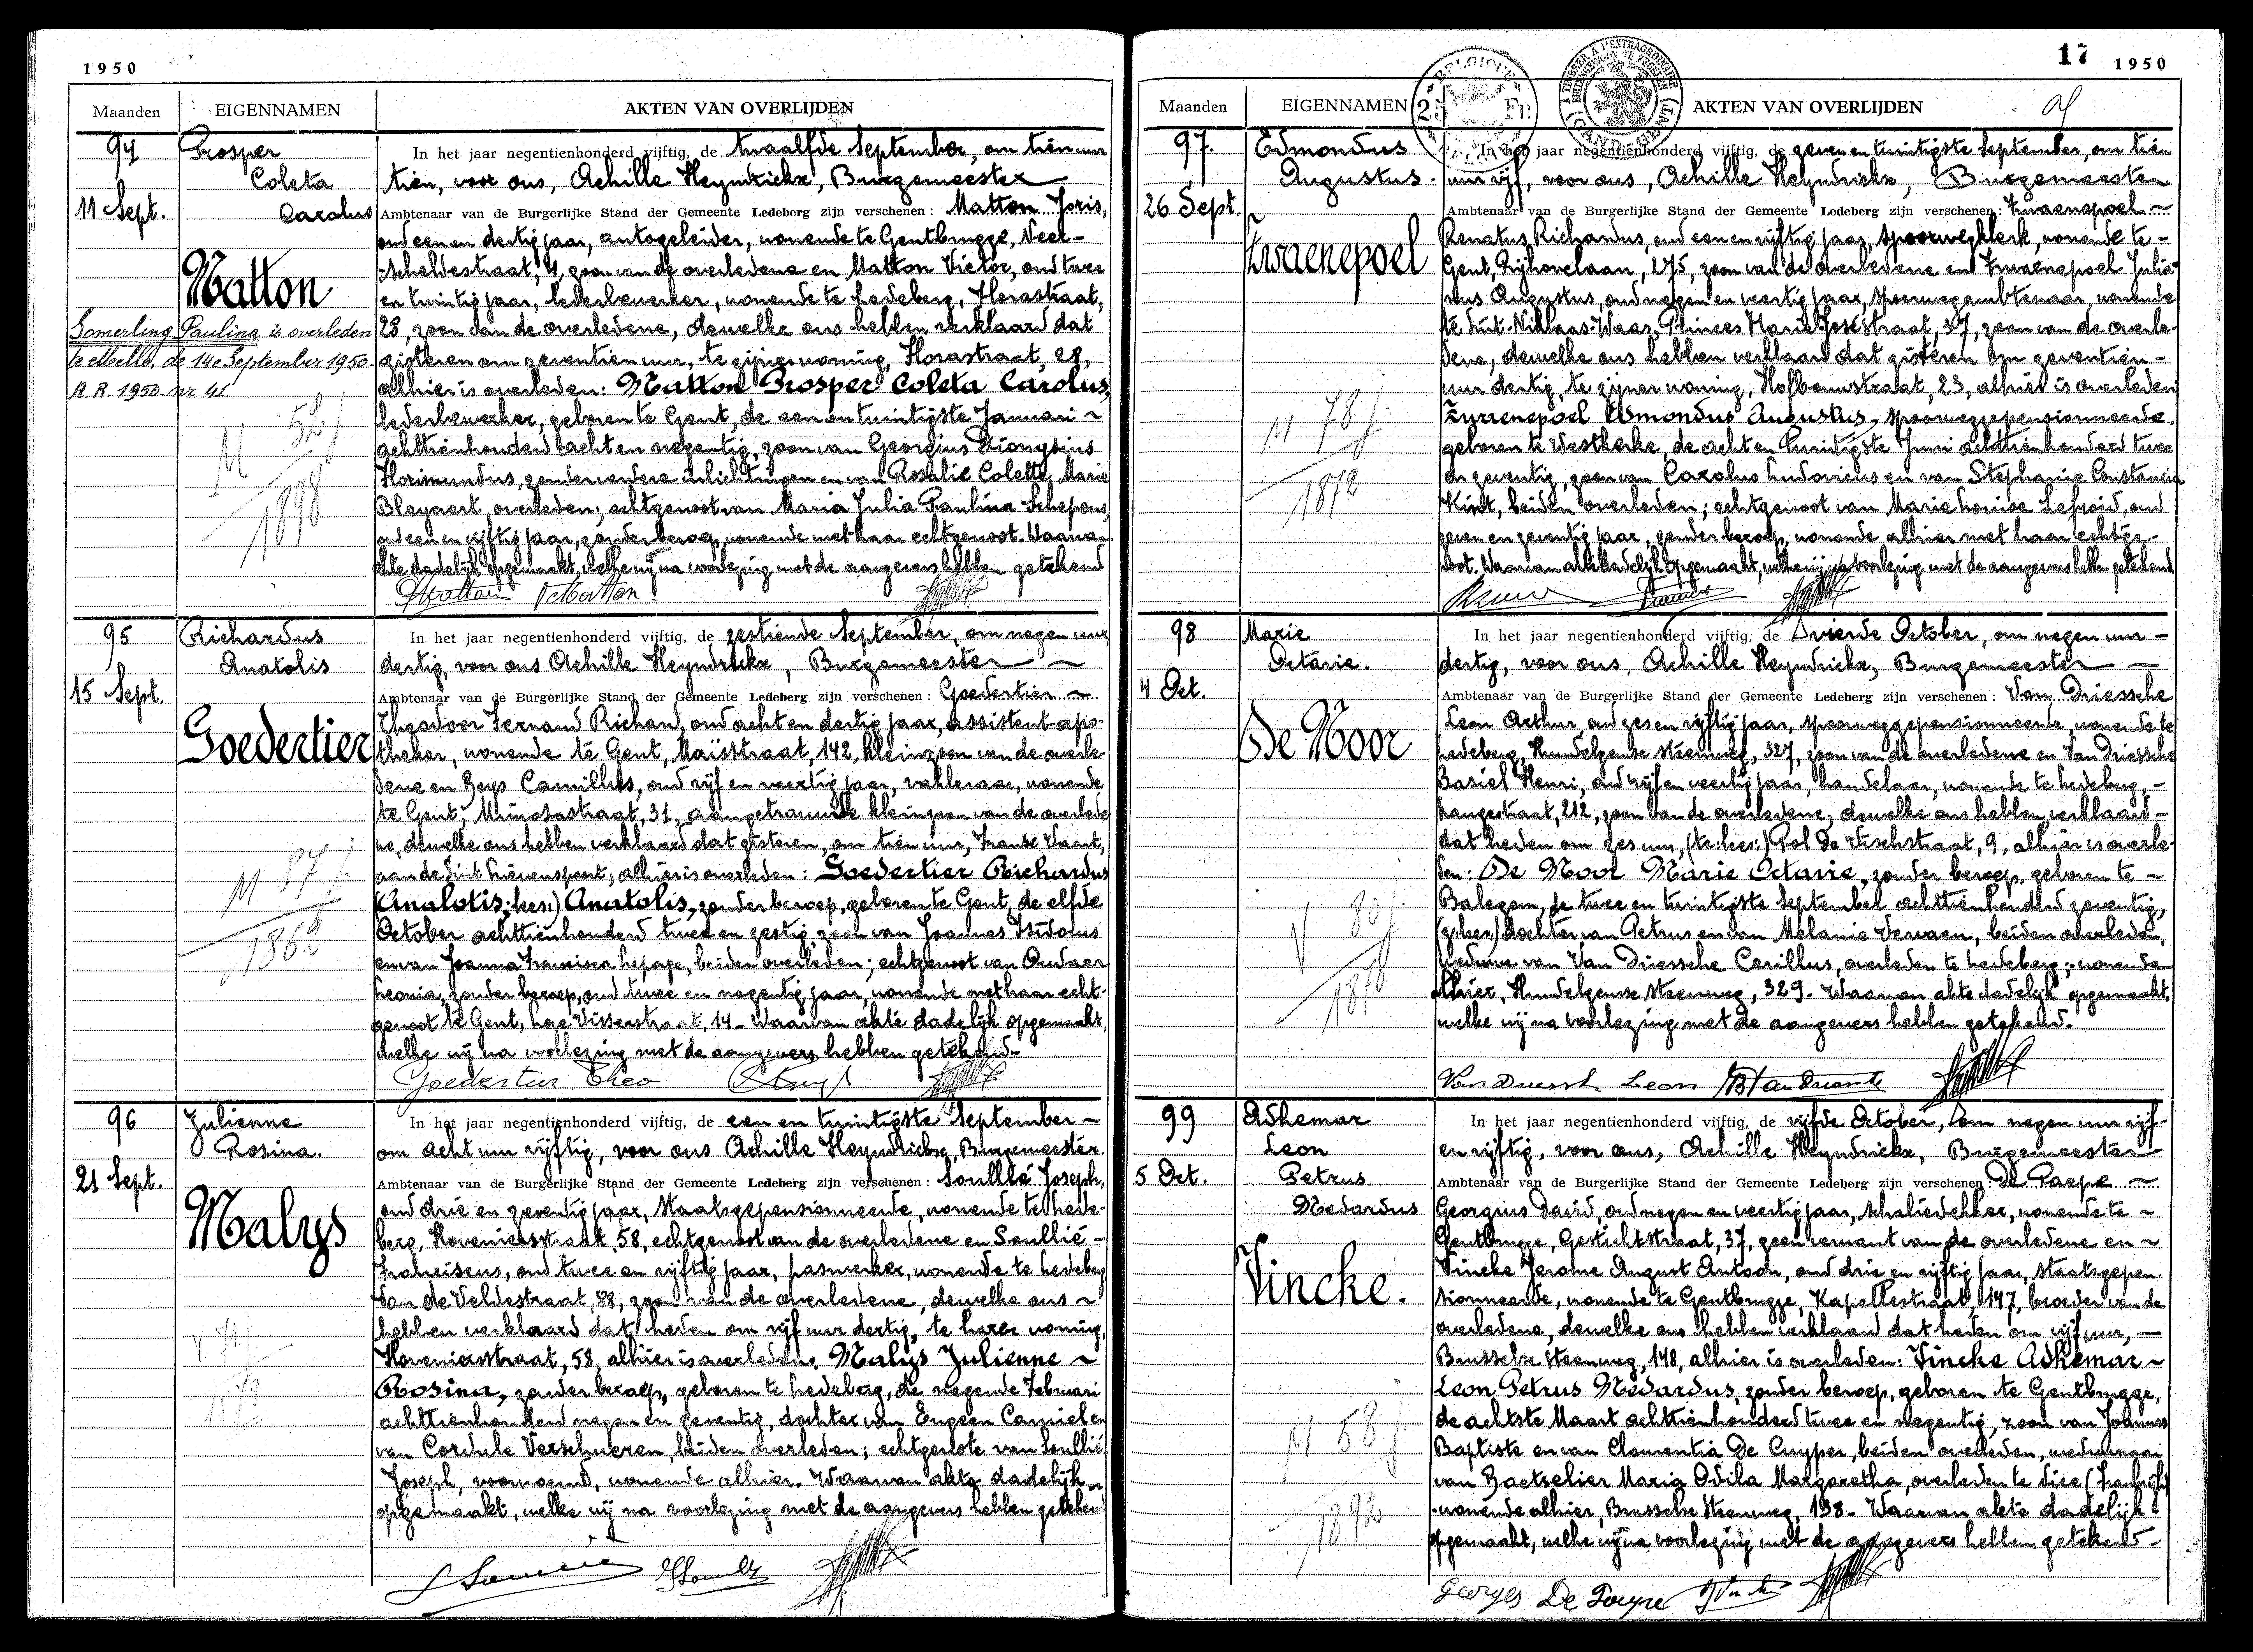 1950
Maanden EIGENNAMEN AKTEN VAN OVERLIJDEN
94
11 Sept.
Prosper
Coleta
Carolus
Matton
Somerling Paulina is overleden
te Melle, de 14e September 1950.
A.R. 1950. nr 41
M 52 j
1898
In het jaar negentienhonderd vijftig, de twaalfde September, om tien uur
tien, voor ons, Achille Heyndrickx, Burgemeester
Ambtenaar van de Burgerlijke Stand der Gemeente Ledeberg zijn verschenen: Matton Joris,
oud een en dertig jaar, autogeleider, wonende te Gentbrugge, Neer-
scheldestraat, 4, zoon van de overledene en Matton Victor, oud twee
en twintig jaar, lederbewerker, wonende te Ledeberg, Florastraat,
28, zoon van de overledene, dewelke ons hebben verklaard dat
gisteren om zeventien uur, te zijner woning, Florastraat, 28,
alhier is overleden: Matton Prosper Coleta Carolus,
lederbewerker, geboren te Gent, de een en twintigste Januari
achttienhonderd acht en negentig, zoon van Georgius Dionysius
Florimundus, zonder verdere inlichtingen en van Rosalie Colette Marie
Bleyaert, overleden; echtgenoot van Maria Julia Paulina Schepens,
oud een en vijftig jaar, zonder beroep, wonende met haar echtgenoot. Waarvan
akte dadelijk opgemaakt, welke wij na voorlezing met de aangevers hebben getekend
95
15 Sept.
Richardus
Anatolis
Goedertier
M 87 j
1862
In het jaar negentienhonderd vijftig, de zestiende September, om negen uur
dertig, voor ons Achille Heyndrickx, Burgemeester
Ambtenaar van de Burgerlijke Stand der Gemeente Ledeberg zijn verschenen: Goedertier
Theodoor Fernand Richard, oud acht en dertig jaar, assistent-apo-
theker, wonende te Gent, Maïsstraat, 142, kleinzoon van de overle-
dene en Beys Camillus, oud vijf en veertig jaar, vakleraar, wonende
te Gent, Mimosastraat, 31, aangetrouwde kleinzoon van de overlede
ne, dewelke ons hebben verklaard dat gisteren, om tien uur, Franse Vaart,
aan de Sint Lievenspoort, alhier is overleden: Goedertier Richardus
(Analotis: her:) Anatolis, zonder beroep, geboren te Gent, de elfde
October achttienhonderd twee en zestig, zoon van Joannes Isidorus
en van Joanna Francisca Lepage, beiden overleden; echtgenoot van Oudaer
Leonia, zonder beroep, oud twee en negentig jaar, wonende met haar echt-
genoot te Gent, Lage Visserstraat, 14. Waarvan akte dadelijk opgemaakt,
welke wij na voorlezing met de aangevers hebben getekend.
Goedertier Theo
96
21 Sept.
Julienne
Rosina.
Malys
In het jaar negentienhonderd vijftig, de een en twintigste September
om acht uur vijftig, voor ons Achille Heyndrickx, Burgemeester.
Ambtenaar van de Burgerlijke Stand der Gemeente Ledeberg zijn verschenen: Soullié Joseph,
oud drie en zeventig jaar, Staatsgepensionneerde, wonende te Lede-
berg, Hovenierstraat, 58, echtgenoot van de overledene en Soullié
Franciscus, oud twee en vijftig jaar, paswerker, wonende te Ledeberg
Van de Veldestraat, 88, zoon van de overledene, dewelke ons
hebben verklaard dat heden om vijf uur dertig, te harer woning,
Hovenierstraat, 58, alhier is overleden: Malys Julienne
Rosina, zonder beroep, geboren te Ledeberg, de negende Februari
achttienhonderd negen en zeventig, dochter van Eugeen Camiel en
van Cordule Verschueren, beiden overleden; echtgenote van Soullié
Joseph, voornoemd, wonende alhier. Waarvan akte dadelijk
opgemaakt, welke wij na voorlezing met de aangevers hebben getekend
17 1950
BELGIQUE
25 Fr.
Maanden EIGENNAMEN AKTEN VAN OVERLIJDEN
97.
26 Sept.
Edmondus
Augustus.
Zwaenepoel
M 78 j.
1872
In het jaar negentienhonderd vijftig, de zeven en twintigste September, om tien
uur vijf, voor ons, Achille Heyndrickx, Burgemeester
Ambtenaar van de Burgerlijke Stand der Gemeente Ledeberg zijn verschenen: Zwaenepoel
Renatus Richardus, oud een en vijftig jaar, spoorwegklerk, wonende te
Gent, Rijhovelaan, 275, zoon van de overledene en Zwaenepoel Julia-
nus Augustus, oud negen en veertig jaar, spoorwegambtenaar, wonende
te Sint-Niklaas-Waas, Prinses Marie-Joséstraat, 37, zoon van de overle-
dene, dewelke ons hebben verklaard dat gisteren om zeventien
uur dertig, te zijner woning, Hofbouwstraat, 23, alhier is overleden
Zwaenepoel Edmondus Augustus, spoorweggepensionneerde,
geboren te Westkerke, de acht en twintigste Juni achttienhonderd twee
en zeventig, zoon van Carolus Ludovicus en van Stephanie Constancia
Kint, beiden overleden; echtgenoot van Marie Louise Lefroid, oud
zeven en zeventig jaar, zonder beroep, wonende alhier met haar echtge-
noot. Waarvan akte dadelijk opgemaakt, welke wij na voorlezing met de aangevers hebben getekend
98
4 Oct.
Marie
Octavie.
De Moor
V 80 j
1870
In het jaar negentienhonderd vijftig, de vierde October, om negen uur
dertig, voor ons, Achille Heyndrickx, Burgemeester
Ambtenaar van de Burgerlijke Stand der Gemeente Ledeberg zijn verschenen: Van Driessche
Leon Arthur, oud zes en vijftig jaar, spoorweggepensionneerde, wonende te
Ledeberg, Hundelgemse steenweg, 327, zoon van de overledene en Van Driessche
Basiel Henri, oud vijf en veertig jaar, handelaar, wonende te Ledeberg,
Langestraat, 212, zoon van de overledene, dewelke ons hebben verklaard
dat heden om zes uur, (te: her:) Pol De Vischstraat, 9, alhier is overle-
den: De Moor Marie Octavie, zonder beroep, geboren te
Balegem, de twee en twintigste September achttienhonderd zeventig,
dochter van Petrus en van Melanie Vervaen, beiden overleden,
weduwe van Van Driessche Cerillus, overleden te Ledeberg; wonende
alhier, Hundelgemse steenweg, 329. Waarvan akte dadelijk opgemaakt,
welke wij na voorlezing met de aangevers hebben getekend.
Van Driessche Leon
99
5 Oct.
Adhemar
Leon
Petrus
Medardus
Vincke.
M 58 j
1892
In het jaar negentienhonderd vijftig, de vijfde October, om negen uur vijf
en vijftig, voor ons, Achille Heyndrickx, Burgemeester
Ambtenaar van de Burgerlijke Stand der Gemeente Ledeberg zijn verschenen: De Paepe
Georgius David, oud negen en veertig jaar, schaliedekker, wonende te
Gentbrugge, Gestichtstraat, 37, geen verwant van de overledene en
Vincke Jerome August Antoon, oud drie en vijftig jaar, staatsgepen-
sionneerde, wonende te Gentbrugge, Kapellestraat, 147, broeder van de
overledene, dewelke ons hebben verklaard dat heden om vijf uur,
Brusselse steenweg, 148, alhier is overleden: Vincke Adhemar
Leon Petrus Medardus, zonder beroep, geboren te Gentbrugge,
de achtste Maart achttienhonderd twee en negentig, zoon van Joannes
Baptiste en van Clementia De Cuyper, beiden overleden, weduwnaar
van Baetselier Maria Odila Margaretha, overleden te Nice (Frankrijk)
wonende alhier, Brusselse Steenweg, 198. Waarvan akte dadelijk
opgemaakt, welke wij na voorlezing met de aangevers hebben getekend.
Georges De Paepe